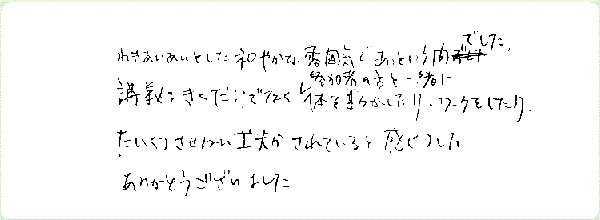 わきあいあいとした和やかな雰囲気であっという間でした。
講義をきくだけでなく参加者の方と一緒に体を動かしたり、ワークをしたり、
たいくつさせない工夫がされていると感じました
ありがとうございました